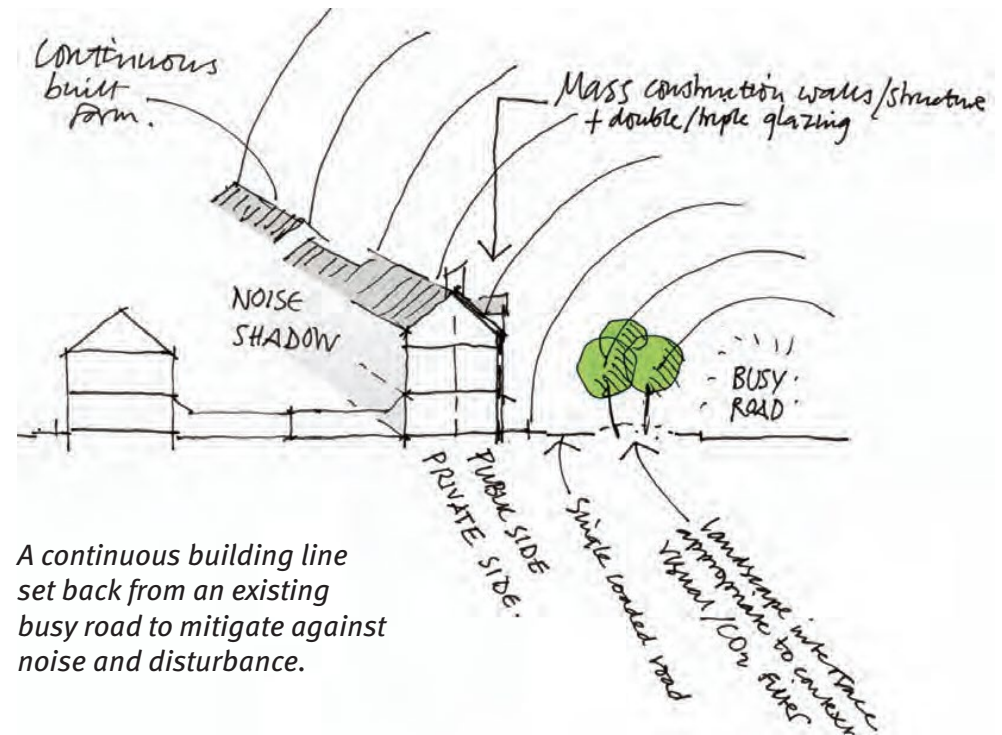 Continuous
built
form.
Mass construction walls/structure
+ double/triple glazing
NOISE
SHADOW
BUSY
ROAD
PUBLIC SIDE
PRIVATE SIDE.
Single loaded road
Landscape interface
appropriate to context
visual/CO2 filter
A continuous building line
set back from an existing
busy road to mitigate against
noise and disturbance.